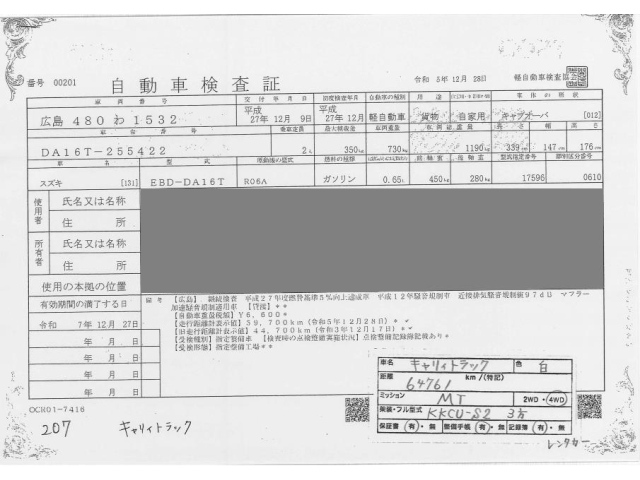 番号 00201
自動車検査証
令和 5年12月28日
軽自動車検査協会
車両番号 交付年月日 初度検査年月 自動車の種別 用途 車体の形状
広島 480 わ 1532
平成 27年12月 9日
平成 27年12月
軽自動車 貨物 自家用 キャブオーバ [012]
乗車定員 最大積載量 車両重量 車両総重量 長さ 幅 高さ
DA16T-255422 2人 350kg 730kg 1190kg 339cm 147cm 176cm
車名 型式 原動機の型式 燃料の種類 前軸重 後軸重 型式指定番号 類別区分番号
スズキ [131] EBD-DA16T R06A ガソリン 0.65L 450kg 280kg 17596 0610
使用者
氏名又は名称
住所
所有者
氏名又は名称
住所
使用の本拠の位置
有効期間の満了する日
令和 7年12月27日
年 月 日
年 月 日
年 月 日
年 月 日
備考
【広島】 継続検査 平成27年度燃費基準5%向上達成車 平成12年騒音規制車 近接排気騒音規制値97dB マフラー
加速騒音規制適用車 【貸渡】**
【自動車重量税額】¥6,600*
【走行距離計表示値】59,700km(令和5年12月28日)**
【旧走行距離計表示値】44,700km(令和3年12月17日)**
【受検種別】指定整備車 【検査時の点検整備実施状況】点検整備記録簿記載あり*
【受検形態】指定整備工場**
車名 キャリィトラック 色 白
距離 64761 km/(特記)
ミッション MT 2WD・4WD
架装・フル型式 KKCU-S2 3方
保証書 有・無 整備手帳 有・無 記録簿 有・無
OCR01-7416
207 キャリィトラック
レンタカー